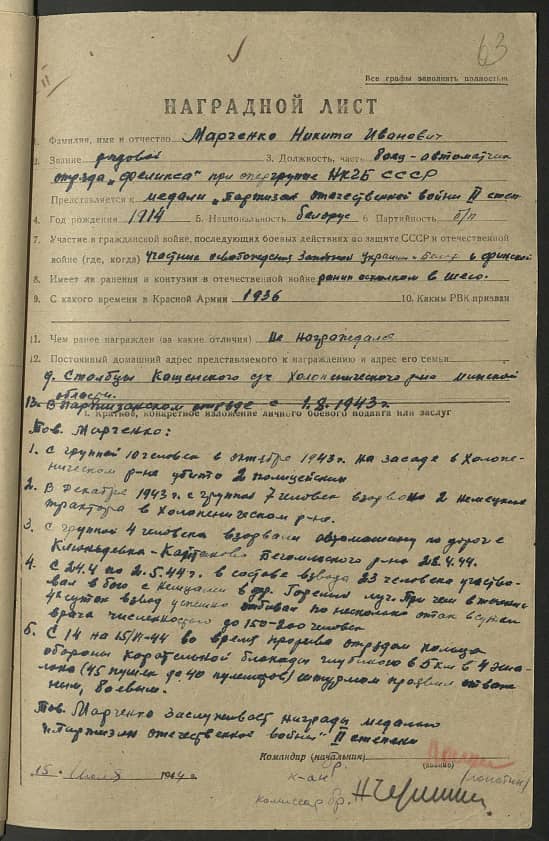 63
Все графы заполнить полностью
НАГРАДНОЙ ЛИСТ
1. Фамилия, имя и отчество Марченко Никита Иванович
2. Звание рядовой 3. Должность, часть боец-автоматчик
отряда „Феликса" при опергруппе НКГБ СССР
Представляется к медали „Партизан отечественной войны" II степ
4. Год рождения 1914 5. Национальность белорус 6. Партийность б/п
7. Участие в гражданской войне, последующих боевых действиях по защите СССР и отечественной
войне (где, когда) Участник освобождения Западной Украины и финской
8. Имеет ли ранения и контузии в отечественной войне ранен осколком в шею.
9. С какого времени в Красной Армии 1936 10. Каким РВК призван
11. Чем ранее награжден (за какие отличия) Не награждался
12. Постоянный домашний адрес представляемого к награждению и адрес его семьи
д. Столбцы с/с Холопенического р-на Минской
области.
13. В партизанском отряде с 1.8.1943 г.
1. Краткое, конкретное изложение личного боевого подвига или заслуг
Тов. Марченко:
1. С группой 10 человек в октябре 1943 г. на засаде в Холопе-
ническом р-не убито 2 полицейских
2. В декабре 1943 г. с группой 7 человек взорвано 2 немецких
трактора в Холопеническом р-не.
3. С группой 4 человека взорвали автомашину по дороге
Бегомльского р-на 28.4.44.
4. С 24.4 по 2.5.44 г. в составе взвода 23 человека участво-
вал в бою с немцами в При чем в течение
4х суток взвод успешно отбивал по несколько атак в сутки
врага численностью до 150-200 человек
5. С 14 на 15/ -44 во время прорыва отрядом кольца
обороны карательной блокады глубиною в 5 км в 4 эше-
лона (45 пушек до 40 пулеметов) штурмом проявил отваж-
ным, боевым.
Тов. Марченко заслуживает награды медалью
„Партизан отечественной войны" II степени
Командир (начальник)
к-ан бр.
15. Июля 1944 г.
комиссар бр.